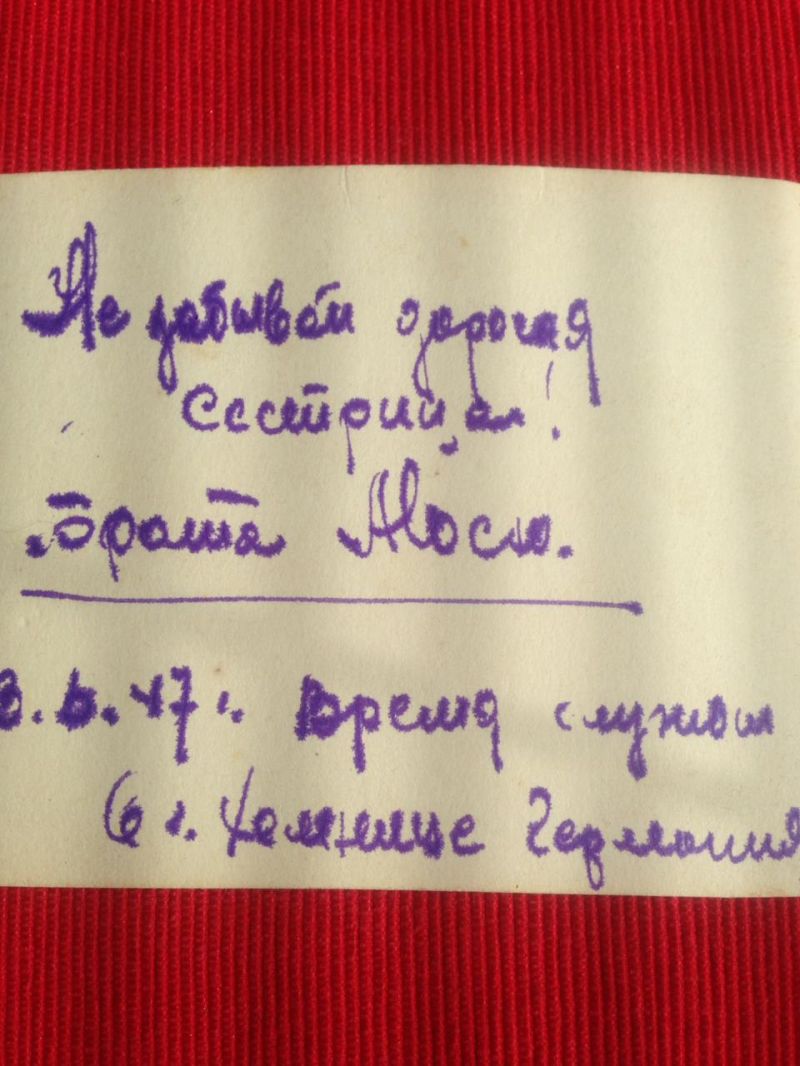 Не забывай дорогая
сестрица!
брата Мосю.
8.6.47 г. время службы
в г. Хемнице Германия